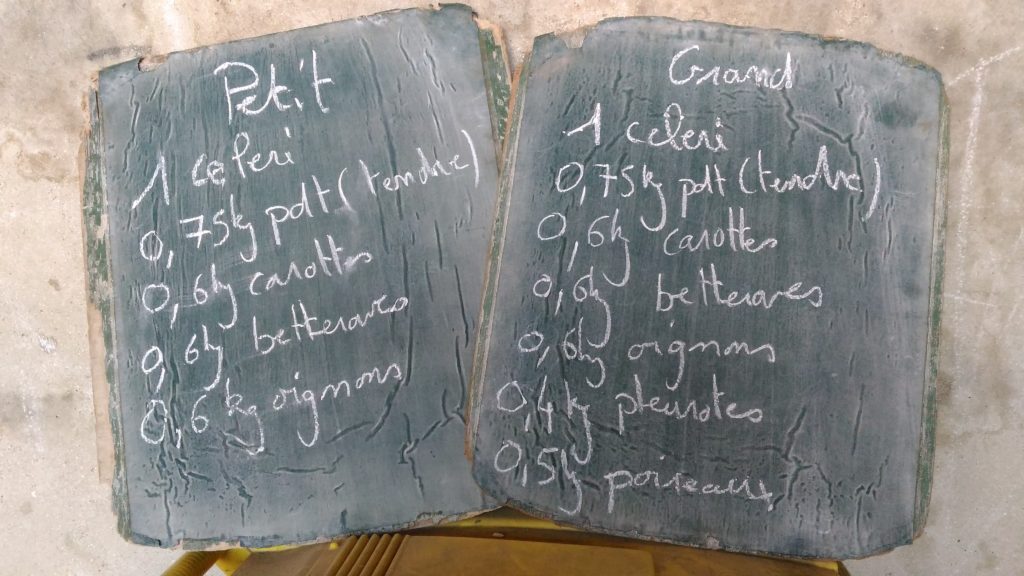 Petit
1 celeri
0,75kg pdt (tendre)
0,6kg carottes
0,6kg betteraves
0,6 kg oignons
Grand
1 celeri
0,75kg pdt (tendre)
0,6kg carottes
0,6kg betteraves
0,6kg oignons
0,4kg pleurotes
0,5kg poireaux